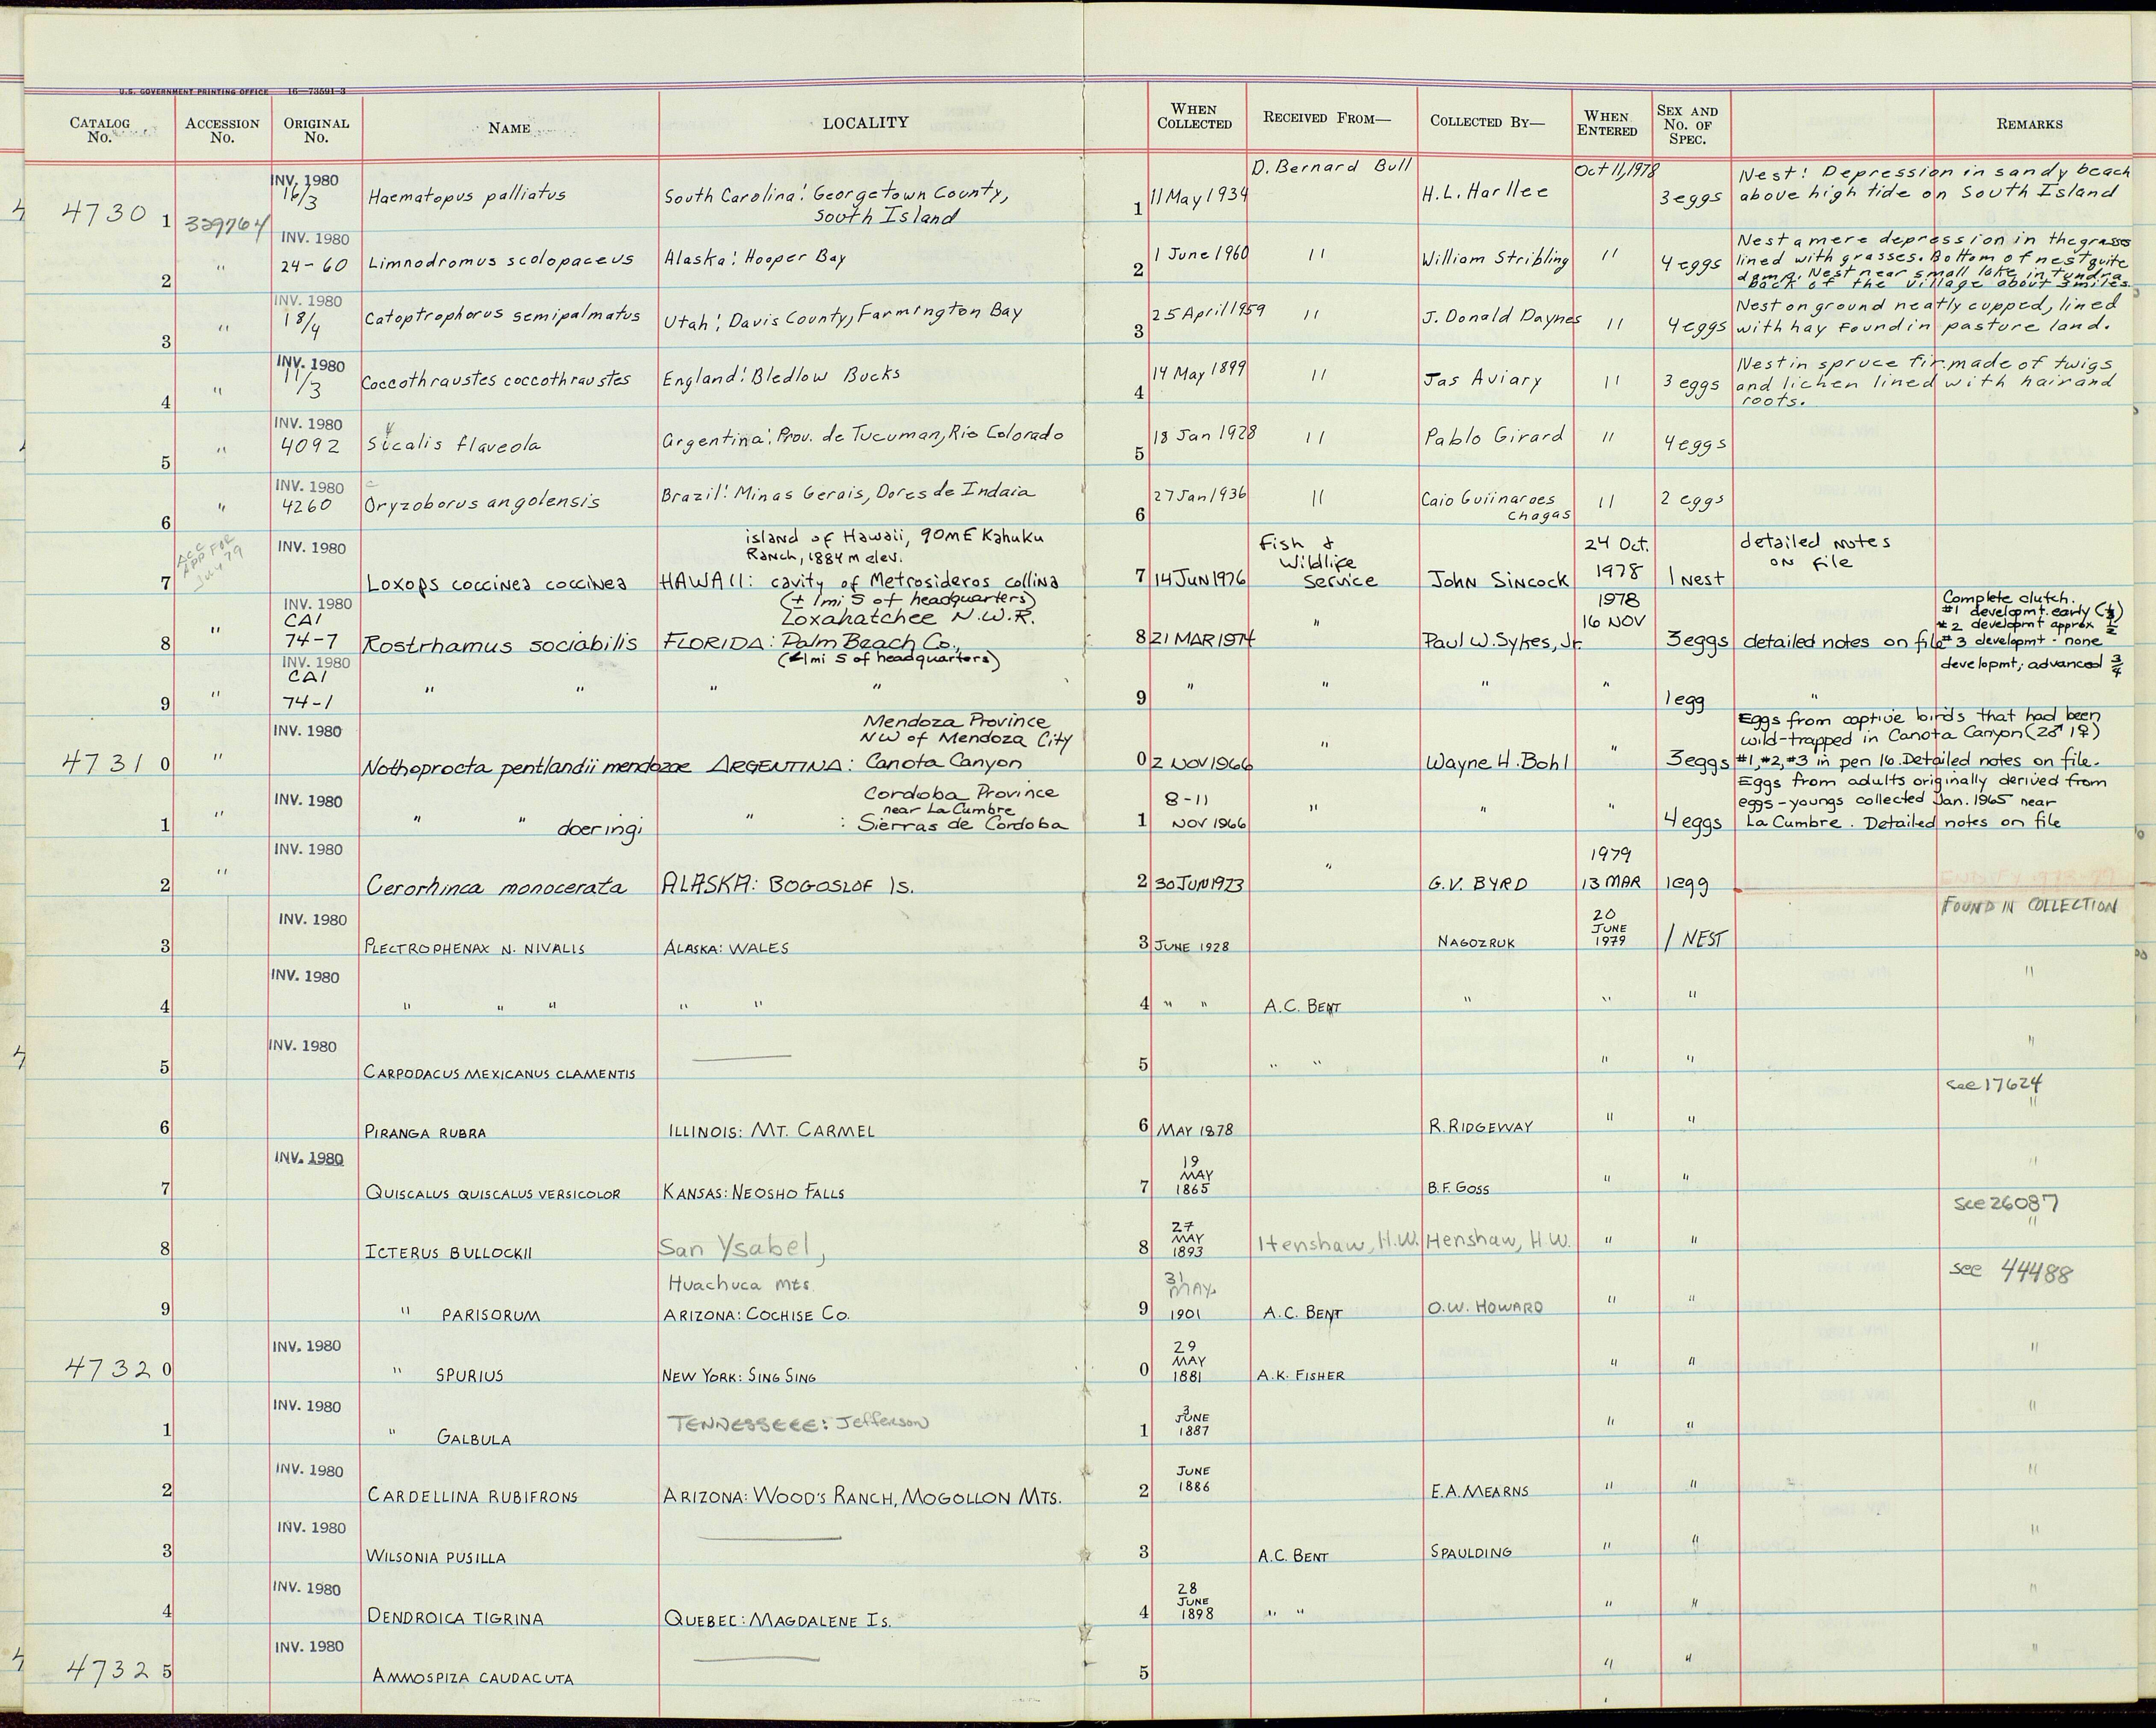 U.S. GOVERNMENT PRINTING OFFICE 16—73591-3
CATALOG No. ACCESSION No. ORIGINAL No. NAME LOCALITY WHEN COLLECTED RECEIVED FROM— COLLECTED BY— WHEN ENTERED SEX AND No. OF SPEC. REMARKS
4730 1 329764 INV. 1980 16/3 Haematopus palliatus South Carolina: Georgetown County, South Island 1 11 May 1934 D. Bernard Bull H.L. Harllee Oct 11, 1978 3 eggs Nest: Depression in sandy beach above high tide on South Island
2 " INV. 1980 24-60 Limnodromus scolopaceus Alaska: Hooper Bay 2 1 June 1960 " William Stribling " 4 eggs Nest a mere depression in the grasses lined with grasses. Bottom of nest quite damp. Nest near small lake in tundra back of the village about 3 miles.
3 " INV. 1980 18/4 Catoptrophorus semipalmatus Utah: Davis County, Farmington Bay 3 25 April 1959 " J. Donald Daynes " 4 eggs Nest on ground neatly cupped, lined with hay found in pasture land.
4 " INV. 1980 11/3 Coccothraustes coccothraustes England: Bledlow Bucks 4 14 May 1899 " Jas Aviary " 3 eggs Nest in spruce fir made of twigs and lichen lined with hair and roots.
5 " INV. 1980 4092 Sicalis flaveola Argentina: Prov. de Tucuman, Rio Colorado 5 18 Jan 1928 " Pablo Girard " 4 eggs
6 " INV. 1980 4260 Oryzoborus angolensis Brazil: Minas Gerais, Dores de Indaia 6 27 Jan 1936 " Caio Guiinaroes Chagas " 2 eggs
7 ACC APP FOR July 79 INV. 1980 Loxops coccinea coccinea HAWAII: cavity of Metrosideros collina island of Hawaii, 90m E Kahuku Ranch, 1884 m elev. 7 14 JUN 1976 Fish & Wildlife Service John Sincock 24 Oct. 1978 1 Nest detailed notes on file
8 " INV. 1980 CA1 74-7 Rostrhamus sociabilis FLORIDA: Palm Beach Co., Loxahatchee N.W.R. (± 1mi S of headquarters) 8 21 MAR 1974 " Paul W. Sykes, Jr. 1978 16 NOV 3 eggs detailed notes on file Complete clutch. #1 developmt. early (1/3) #2 developmt approx 1/2 #3 developmt - none
9 " INV. 1980 CA1 74-1 " " " " (1mi S of headquarters) 9 " " " " 1 egg " developmt; advanced 3/4
4731 0 " INV. 1980 Nothoprocta pentlandii mendozae ARGENTINA: Canota Canyon Mendoza Province NW of Mendoza City 0 2 NOV 1966 " Wayne H. Bohl " 3 eggs Eggs from captive birds that had been wild-trapped in Canota Canyon (2♂ 1♀) #1, #2, #3 in pen 16. Detailed notes on file.
1 " INV. 1980 " " doeringi " : Sierras de Cordoba Cordoba Province near La Cumbre 1 8-11 NOV 1966 " " " 4 eggs Eggs from adults originally derived from eggs - youngs collected Jan. 1965 near La Cumbre. Detailed notes on file
2 " INV. 1980 Cerorhinca monocerata ALASKA: BOGOSLOF IS. 2 30 JUN 1973 " G.V. BYRD 1979 13 MAR 1 egg
3 INV. 1980 PLECTROPHENAX N. NIVALIS ALASKA: WALES 3 JUNE 1928 NAGOZRUK 20 JUNE 1979 1 NEST FOUND IN COLLECTION
4 INV. 1980 " " " " " 4 " " A.C. BENT " " " "
5 INV. 1980 CARPODACUS MEXICANUS CLEMENTIS 5 " " " " "
6 PIRANGA RUBRA ILLINOIS: MT. CARMEL 6 MAY 1878 R. RIDGEWAY " " see 17624 "
7 INV. 1980 QUISCALUS QUISCALUS VERSICOLOR KANSAS: NEOSHO FALLS 7 19 MAY 1865 B.F. GOSS " " "
8 ICTERUS BULLOCKII San Ysabel, 8 27 MAY 1893 Henshaw, H.W. Henshaw, H.W. " " see 26087 "
9 " PARISORUM Huachuca Mts. ARIZONA: COCHISE CO. 9 31 MAY 1901 A.C. BENT O.W. HOWARD " " see 44488
4732 0 INV. 1980 " SPURIUS NEW YORK: SING SING 0 29 MAY 1881 A.K. FISHER " " "
1 INV. 1980 " GALBULA TENNESSEEE: Jefferson 1 3 JUNE 1887 " " "
2 INV. 1980 CARDELLINA RUBIFRONS ARIZONA: WOOD'S RANCH, MOGOLLON MTS. 2 JUNE 1886 E.A. MEARNS " " "
3 INV. 1980 WILSONIA PUSILLA 3 A.C. BENT SPAULDING " " "
4 INV. 1980 DENDROICA TIGRINA QUEBEC: MAGDALENE IS. 4 28 JUNE 1898 " " " " "
4732 5 INV. 1980 AMMOSPIZA CAUDACUTA 5 " " "